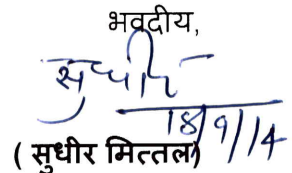 भवदीय,
सुधीर
18/9/14
( सुधीर मित्तल)